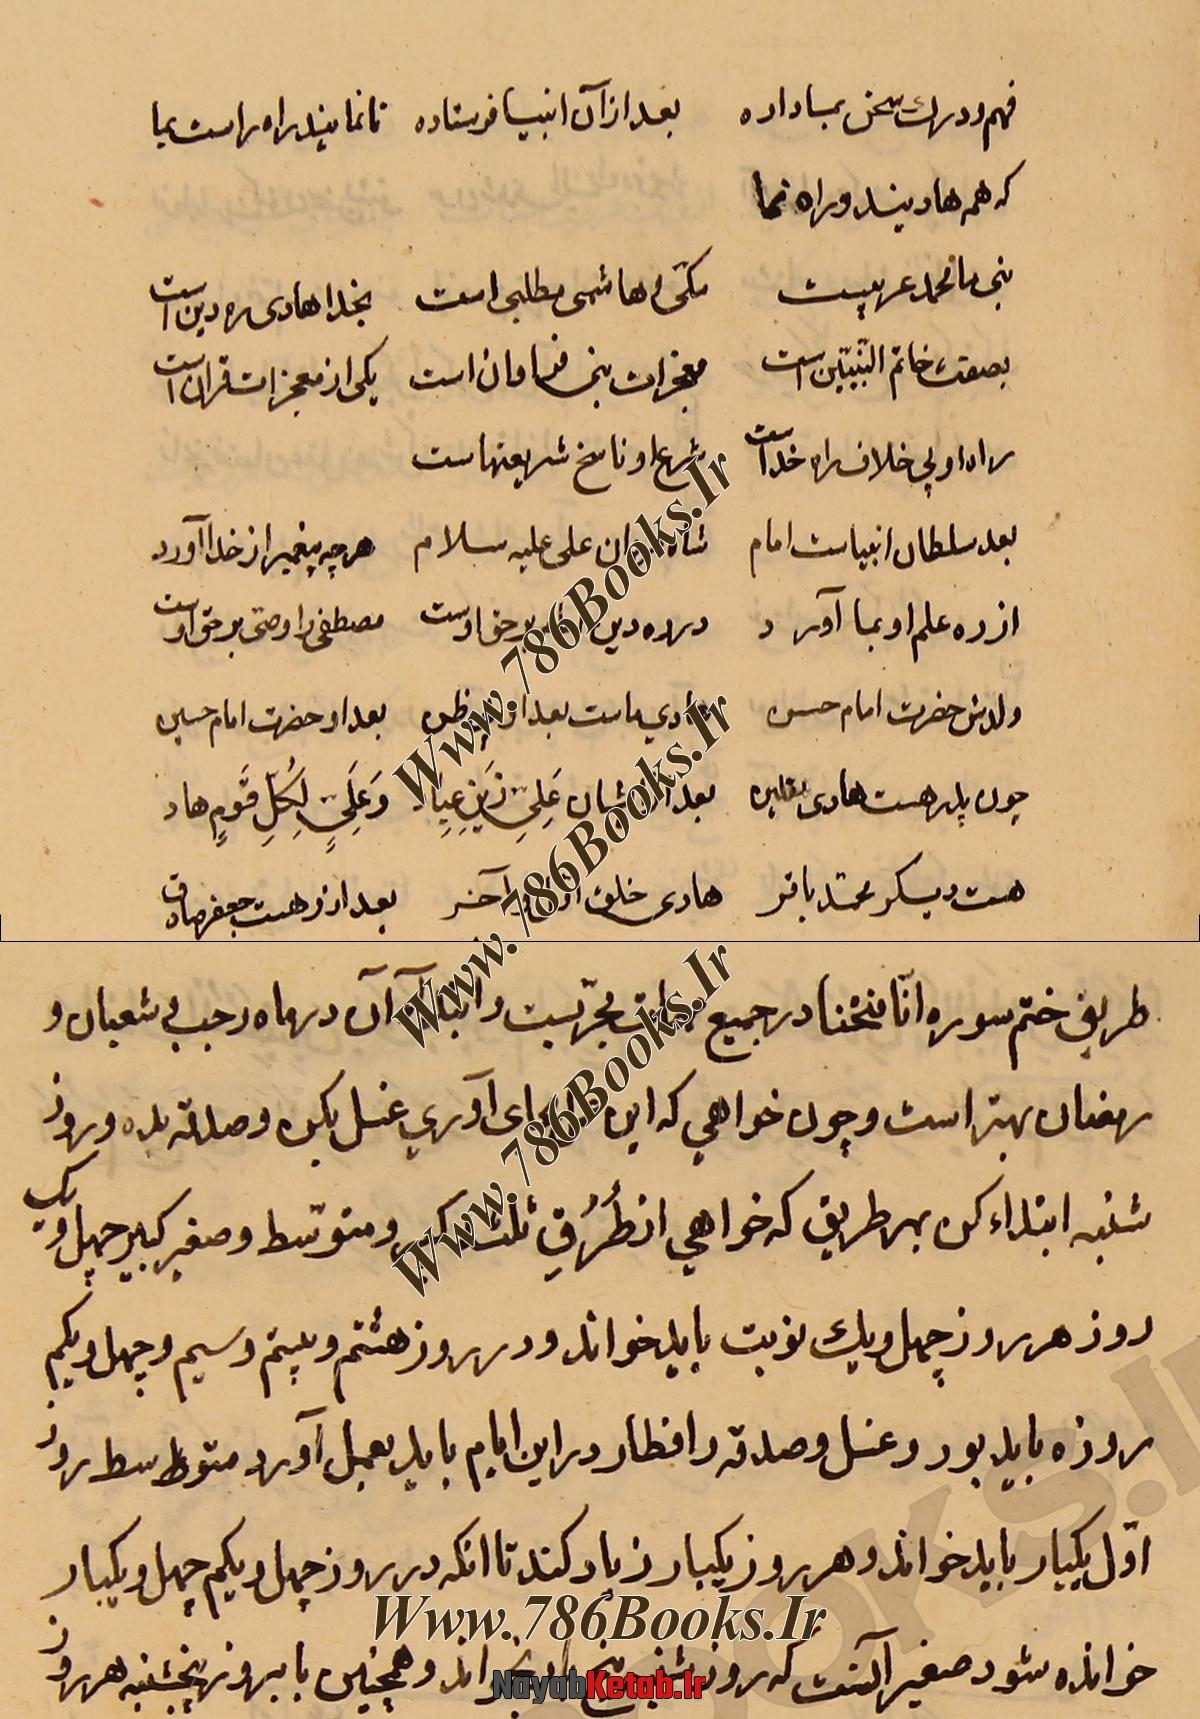 فهم و درک سخن بما داده بعد از آن انبیا فرستاده تا نمایند راه راست بما
که همه هادیند و راه نما
نبی ما محمد عربیست مکّی و هاشمی مطلبی است بخدا هادی ره دین است
بصفت خاتم النّبیّین است معجزات نبی فراوان است یکی از معجزات قران است
راه او بی خلاف راه خداست شرع او ناسخ شریعتهاست
بعد سلطان انبیاست امام شاه مردان علی علیه سلام هرچه پیغمبر از خدا آورد
از ره علم او بما آورد در ره دین بر حق اوست مصطفی را وصی بر حق اوست
ولدش حضرت امام حسن هادی ماست بعد او بعد او حضرت امام حسین
چون پدر هست هادی ثقلین بعد ازیشان عَلِی زَینِ عِباد وَعَلِیٍ لِکُلِّ قَومٍ هاد
هست دیگر محمّد باقر هادی خلق اوّل و آخر بعد ازو هست جعفر صادق
طریق ختم سوره انّا فتحنا در جمیع مجرّبست و ابتدای آن در ماه رجب یا شعبان و
رمضان بهتر است و چون خواهی که این بجای آوری غسل بکن و صدقه بده و روز
شنبه ابتداء کن بهر طریق که خواهی از طُرُقِ ثلث کبیر و متوسّط و صغیر کبیر چهل و یک
روز هر روز چهل و یک نوبت باید خواند و در روز هشتم و بیستم و سیم و چهل و یکم
روزه باید بود و غسل و صدقه و افطار در این ایام باید بعمل آورد متوسط روز
اوّل یکبار باید خواند و هر روز یکبار زیاد کند تا انکه در روز چهل و یکم چهل و یکبار
خوانده شود صغیر آنست که روز شنبه پنج بار بخواند و همچنین تا بروز پنجشنبه هر روز
Www.786Books.Ir
Www.786Books.Ir
Www.786Books.Ir
Www.786Books.Ir
NayabKetab.Ir